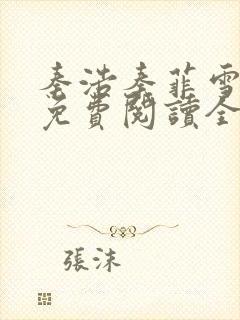 秦浩秦菲雪
免費閱讀全
張沫